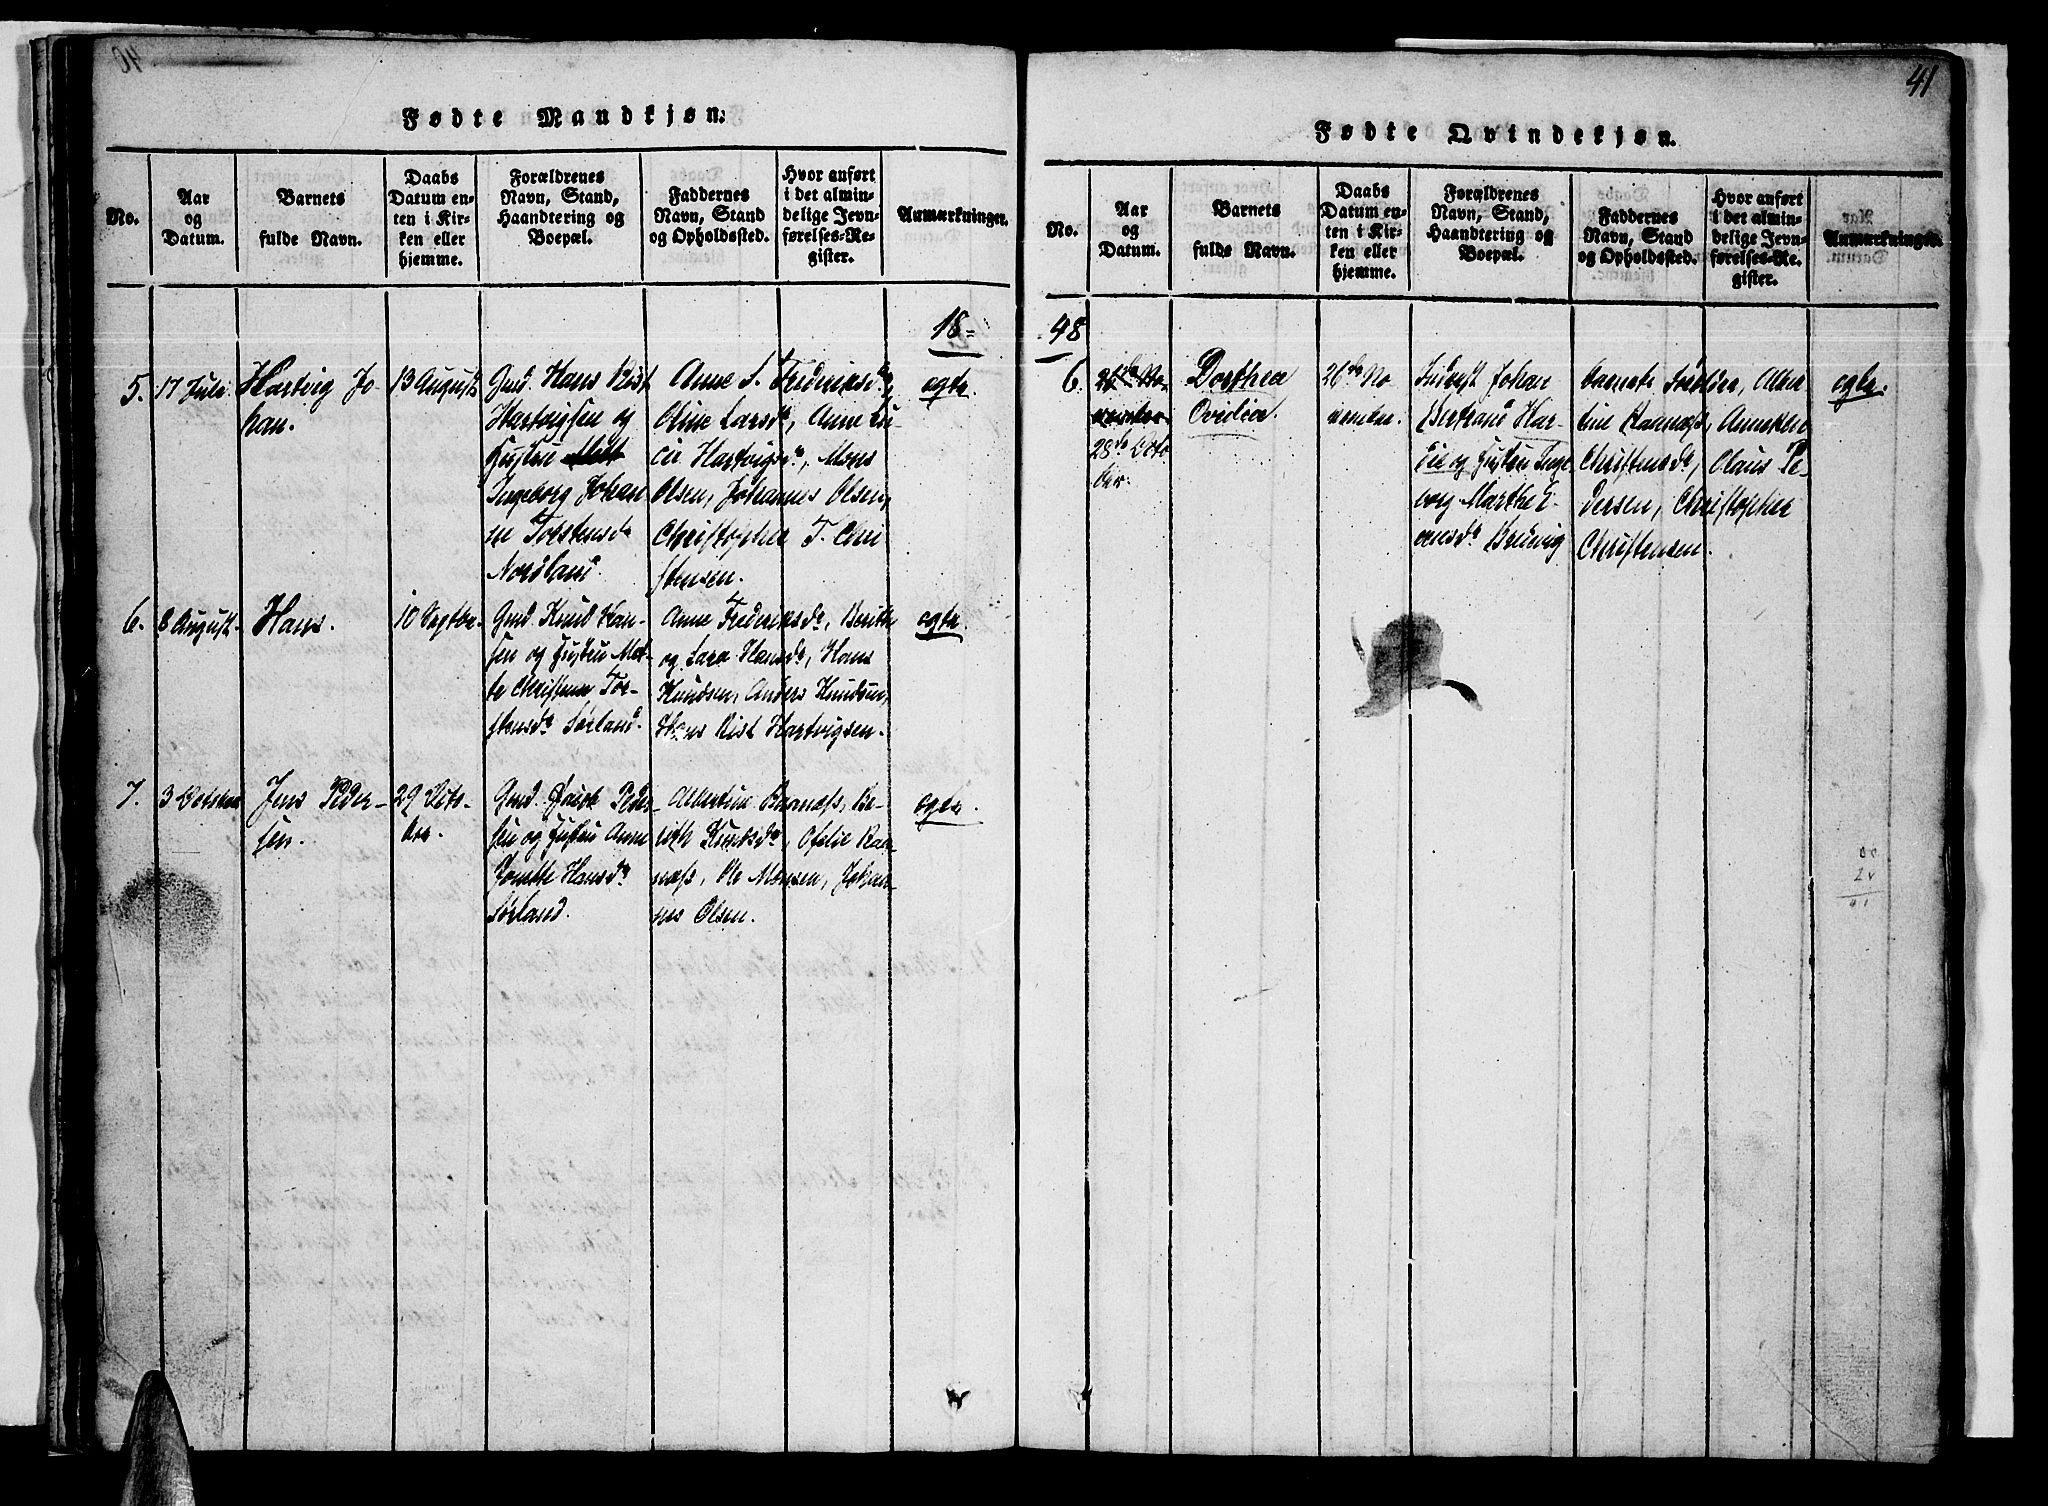 40
Fødte Mandkjøn:
No.
Aar
og
Datum.
Barnets
fulde Navn.
Daabs
Datum en-
ten i Kir-
ken eller
hjemme.
Forældrenes
Navn, Stand,
Haandtering og
Boepæl.
Faddernes
Navn, Stand
og Opholdssted.
Hvor anført
i det almin-
delige Jevn-
førelses-Re-
gister.
Anmærkninger.
18-
5.
17 Juli
Hartvig Jo-
han.
13 August
Gmd. Hans Rist
Hartvigsen og
Hustru
Ingeborg Johan
ne Torstensdr
Nordland.
Anne S. Fredriksdr,
Oline Larsdr, Anne Lu-
cie Hartvigsdr, Mons
Olsen, Johannes Olsen,
Christopher T. Chri
stensen.
ægte.
6.
8 August
Hans.
10 Septbr.
Gmd. Knud Han-
sen og Hustru Met-
te Christine Tor-
stensdr Sørland.
Anne Frederiksdr, Berith
og Sara Hansdr, Hans
Knudsen, Anders Knudsen,
Hans Rist Hartvigsen.
ægte.
7.
3 October
Jens Peder-
sen.
29 Octo-
ber.
Gmd. Jacob Peder-
sen og Hustru Anne
Jonette Hansdr
Sørland.
Albertine Raanæss, Be-
rith Knudsdr, Ofelie Raa-
næss, Ole Monsen, Johan-
nes Olsen.
ægte.
41
Fødte Qvindekjøn.
No.
Aar
og
Datum.
Barnets
fulde Navn.
Daabs
Datum en-
ten i Kir-
ken eller
hjemme.
Forældrenes
Navn, Stand,
Haandtering og
Boepæl.
Faddernes
Navn, Stand
og Opholdssted.
Hvor anført
i det almin-
delige Jevn-
førelses-Re-
gister.
Anmærkninger.
48
6.
26de No-
vember
28de Octo
ber.
Dorthea
Ovidia.
26de No
vember.
Johan
Bertrand Har-
og Hustru Inge-
borg Marthe E-
vensdr Brudvig
Barnets Forældre, Alber
tine Raanæss,
Christensdr, Claus Pe-
dersen, Christopher
Christensen.
ægte.